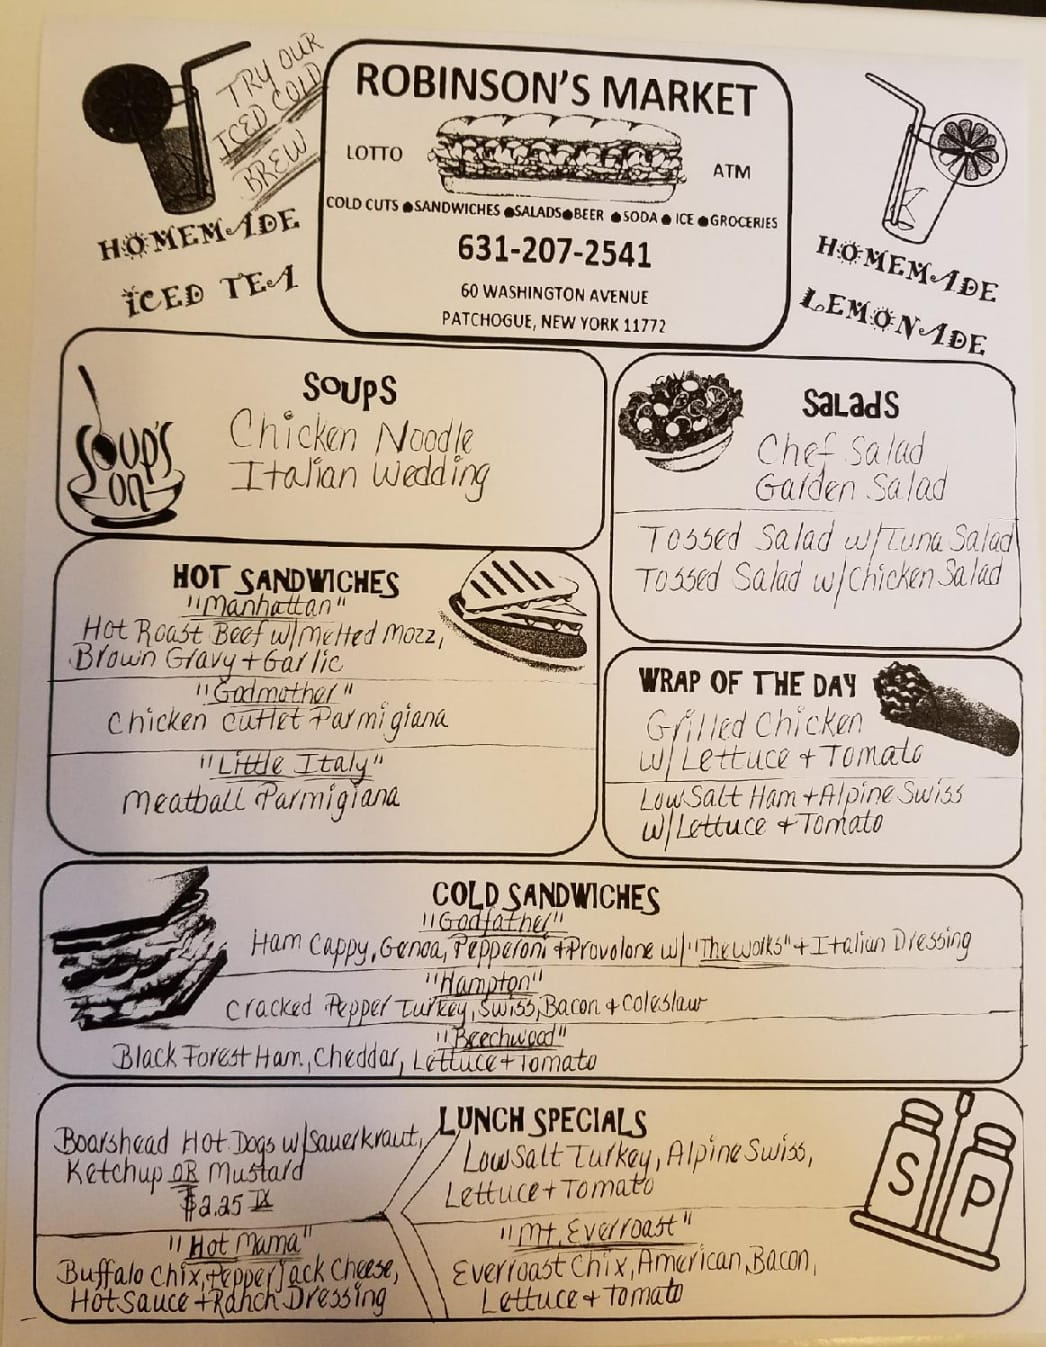 TRY OUR
ICED COLD
BREW
HOMEMADE
ICED TEA
ROBINSON'S MARKET
LOTTO
ATM
COLD CUTS ●SANDWICHES ●SALADS●BEER ●SODA ● ICE ●GROCERIES
631-207-2541
60 WASHINGTON AVENUE
PATCHOGUE, NEW YORK 11772
HOMEMADE
LEMONADE
SOUPS
SOUP'S
ON
Chicken Noodle
Italian Wedding
SALADS
Chef Salad
Garden Salad
Tossed Salad w/Tuna Salad
Tossed Salad w/Chicken Salad
HOT SANDWICHES
"Manhattan"
Hot Roast Beef w/melted mozz,
Brown Gravy + Garlic
"Godmother"
Chicken Cutlet Parmigiana
"Little Italy"
Meatball Parmigiana
WRAP OF THE DAY
Grilled Chicken
w/Lettuce + Tomato
Low Salt Ham + Alpine Swiss
w/Lettuce + Tomato
COLD SANDWICHES
"Godfather"
Ham Cappy, Genoa, Pepperoni + Provolone w/"The Works" + Italian Dressing
"Hampton"
Cracked Pepper Turkey, Swiss, Bacon + Coleslaw
"Beechwood"
Black Forest Ham, Cheddar, Lettuce + Tomato
LUNCH SPECIALS
Boarshead Hot Dogs w/Sauerkraut,
Ketchup OR Mustard
$2.25 TX
"Hot Mama"
Buffalo Chix, Pepper Jack Cheese,
Hot Sauce + Ranch Dressing
Low Salt Turkey, Alpine Swiss,
Lettuce + Tomato
"Mt. Everroast"
Everroast Chix, American, Bacon,
Lettuce + Tomato
S
P